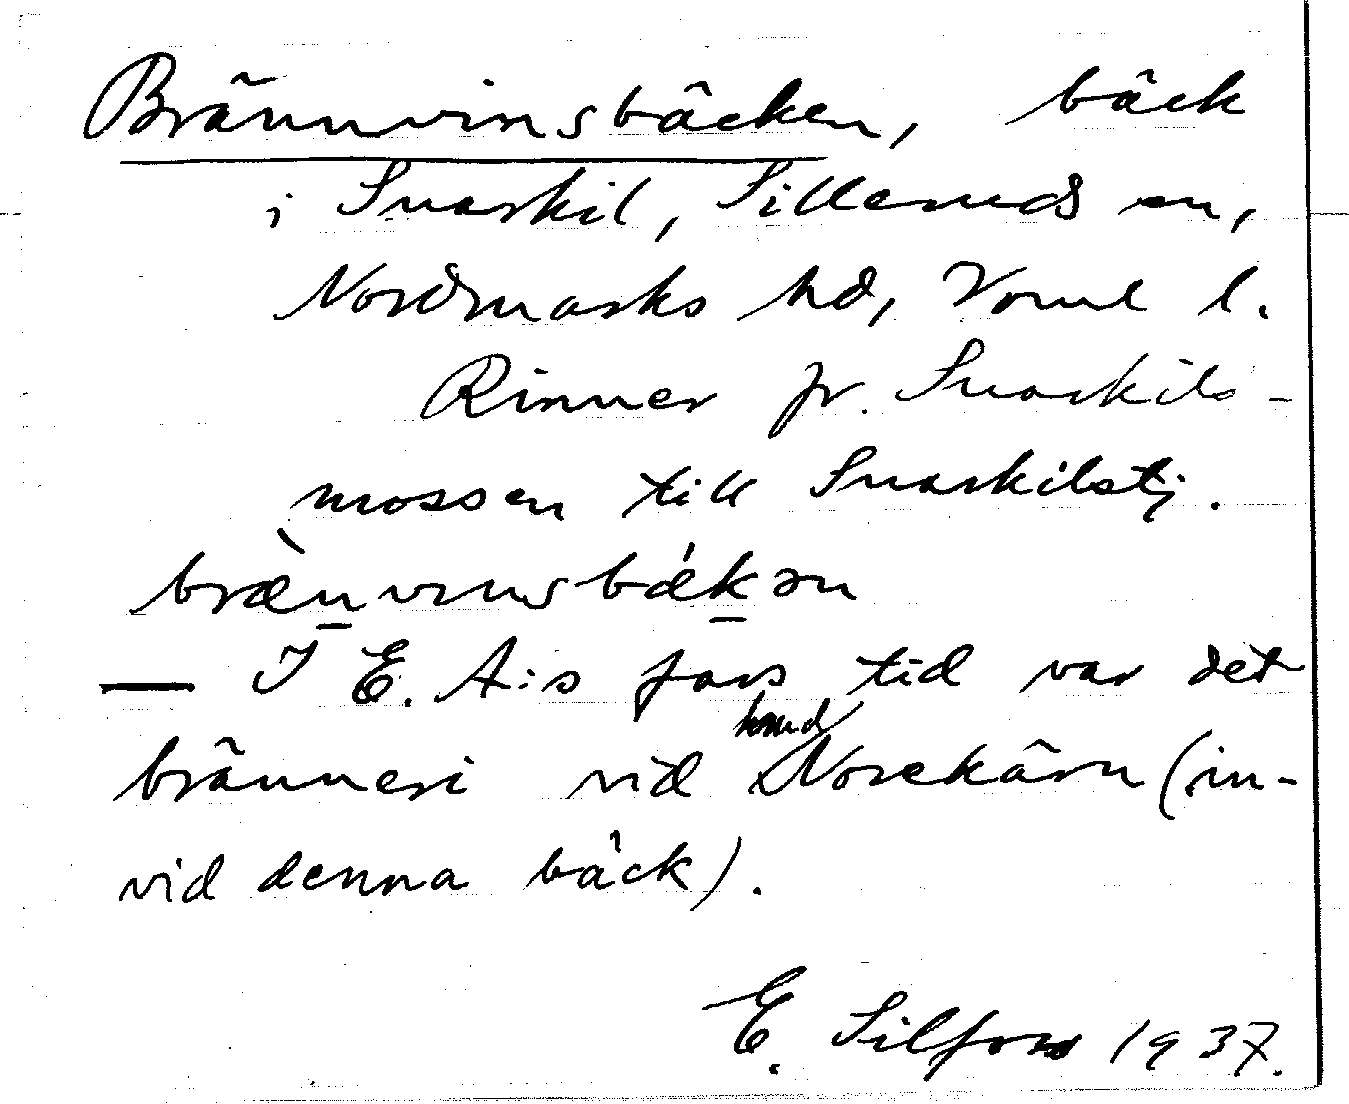 Brännvinsbäcken, bäck
i Snarkil, Silleruds sn,
Nordmarks hd, Vorml l.
Rinner fr. Snarkils-
mossen till Snarkilstj.
bræ̀n̲vinsbæ̍k̲ən
— I E. A:s fars tid var det
bränneri vid Norekärn (in-
vid denna bäck).
E. Silfors 1937.